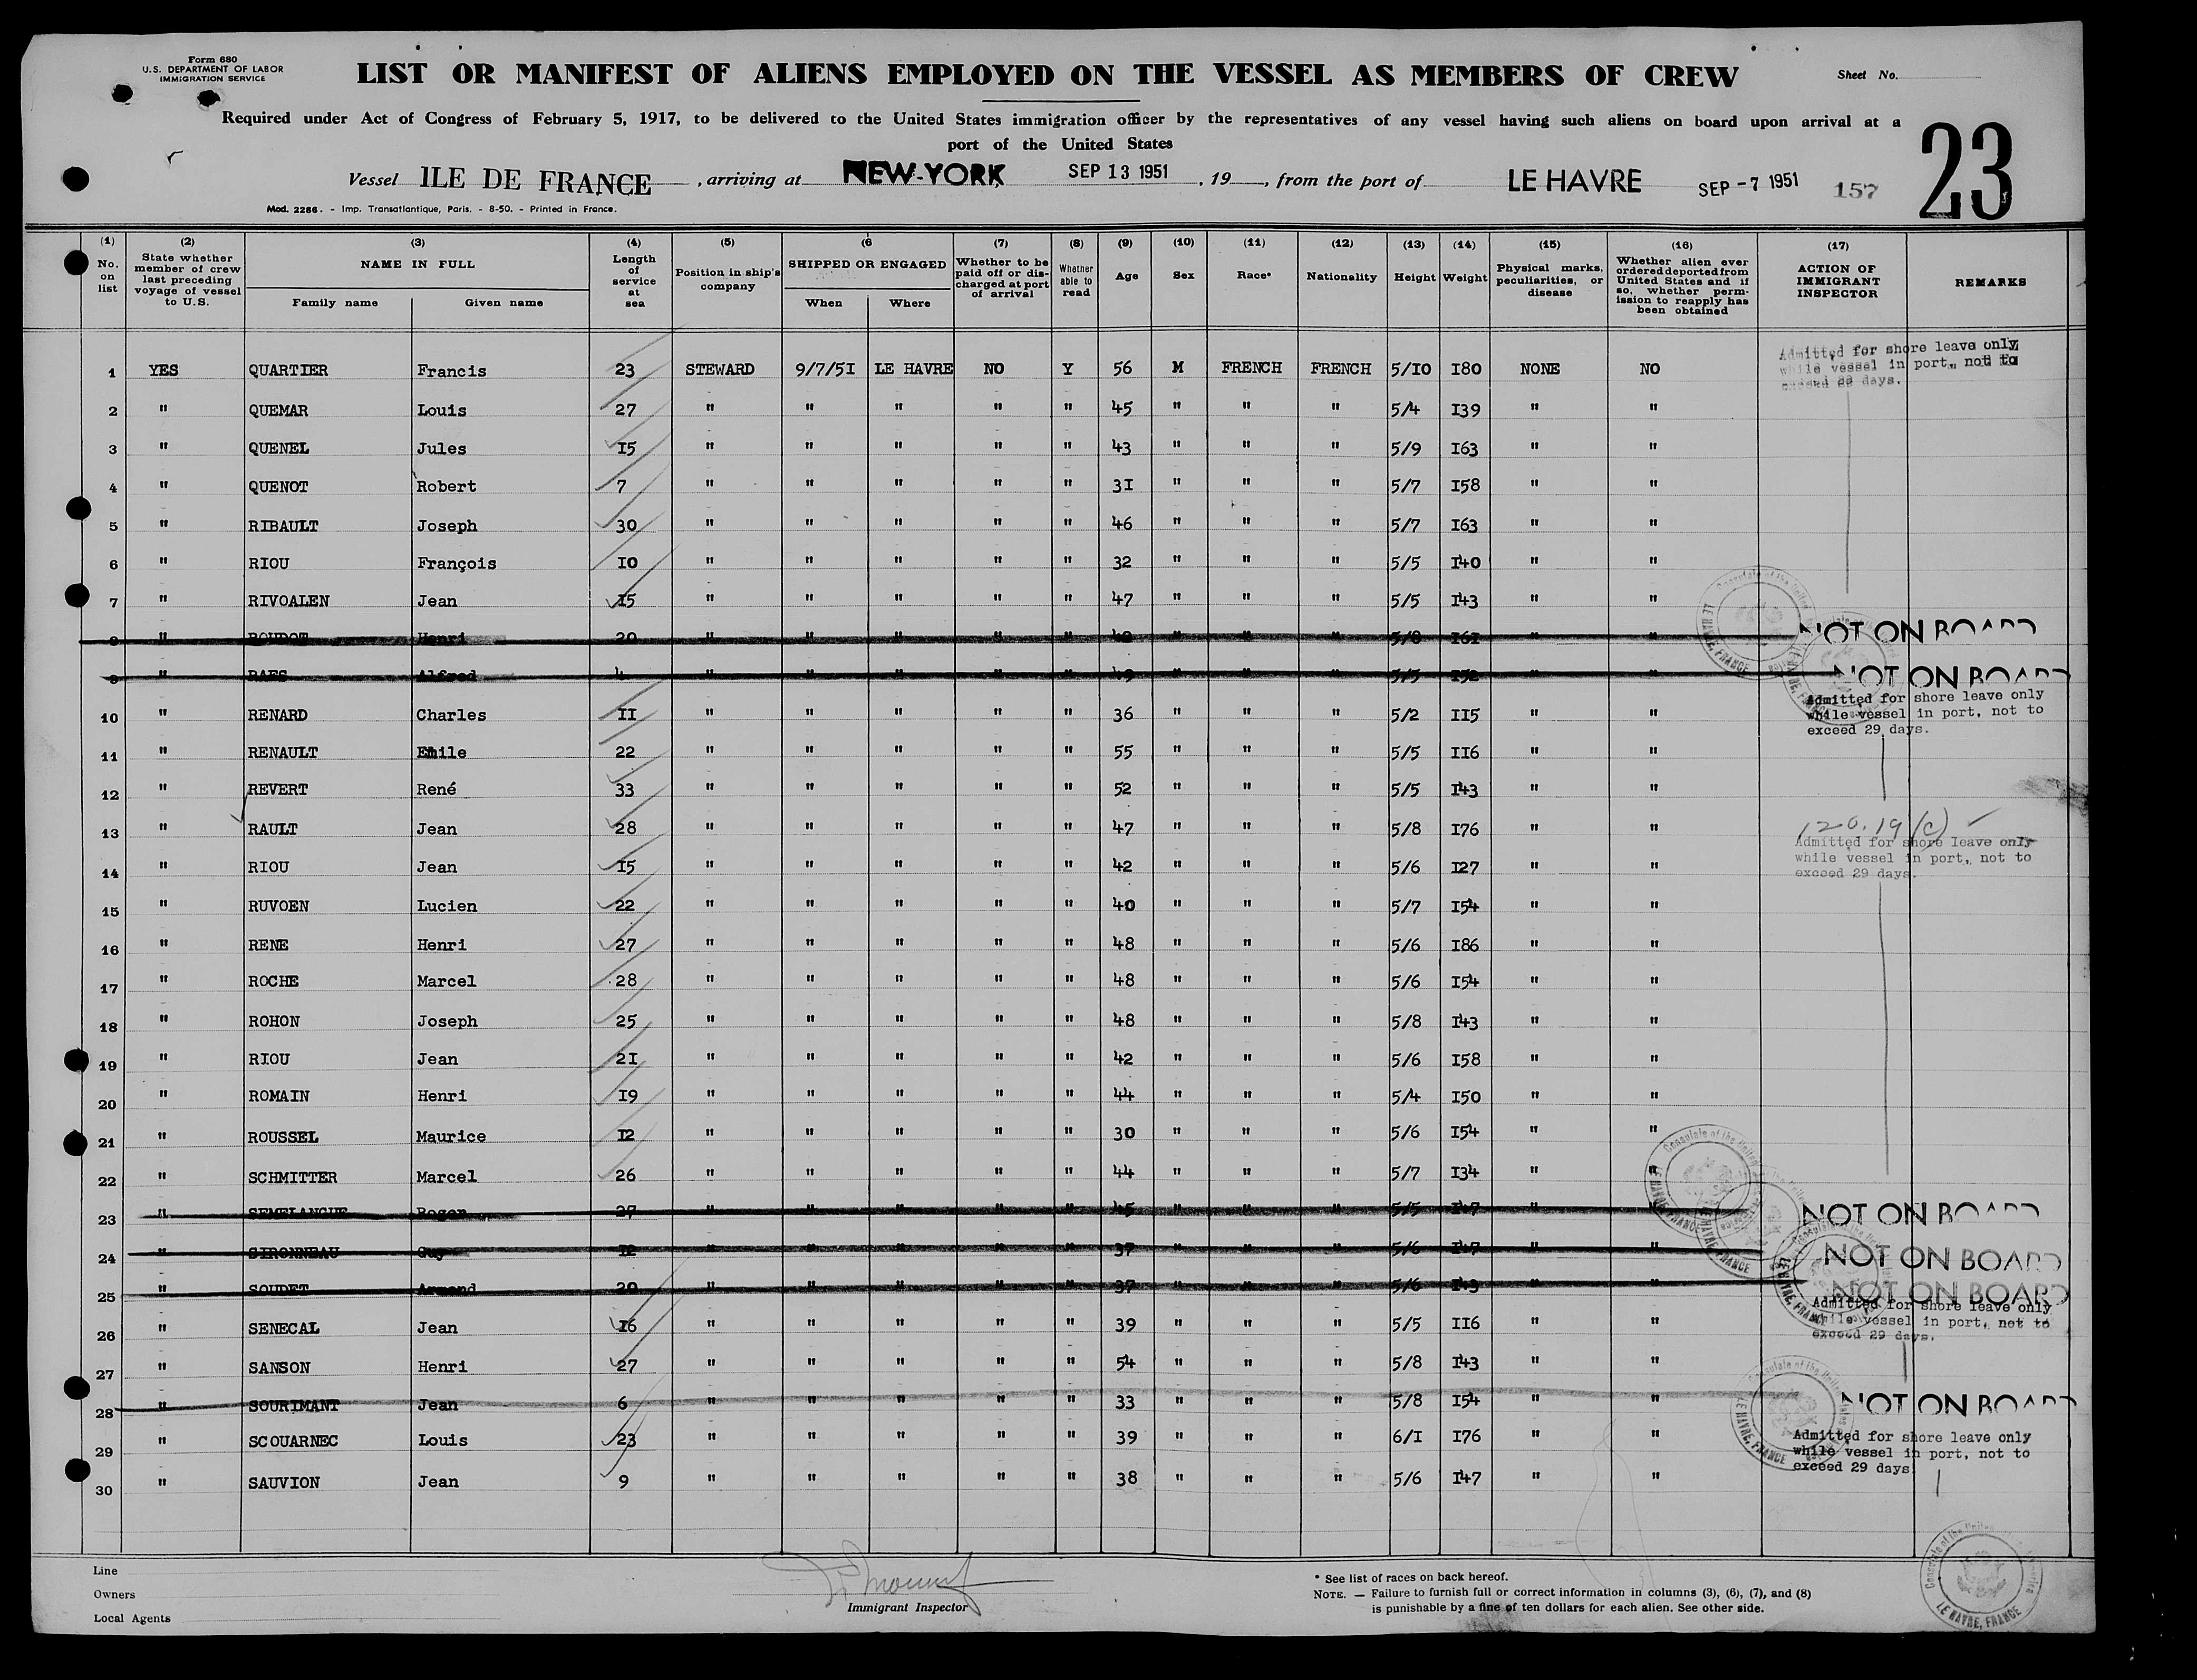 Form 680
U.S. DEPARTMENT OF LABOR
IMMIGRATION SERVICE
LIST OR MANIFEST OF ALIENS EMPLOYED ON THE VESSEL AS MEMBERS OF CREW
Sheet No.
Required under Act of Congress of February 5, 1917, to be delivered to the United States immigration officer by the representatives of any vessel having such aliens on board upon arrival at a
port of the United States
23
Vessel ILE DE FRANCE, arriving at NEW-YORK SEP 13 1951, 19, from the port of LE HAVRE SEP -7 1951 157
Mod. 2286. - Imp. Transatlantique, Paris. - 8-50. - Printed in France.
(1) No. on list (2) State whether member of crew last preceding voyage of vessel to U.S. (3) NAME IN FULL Family name Given name (4) Length of service at sea (5) Position in ship's company (6 SHIPPED OR ENGAGED When Where (7) Whether to be paid off or discharged at port of arrival (8) Whether able to read (9) Age (10) Sex (11) Race* (12) Nationality (13) Height (14) Weight (15) Physical marks, peculiarities, or disease (16) Whether alien ever ordered deported from United States and if so, whether permission to reapply has been obtained (17) ACTION OF IMMIGRANT INSPECTOR REMARKS
1 YES QUARTIER Francis 23 STEWARD 9/7/51 LE HAVRE NO Y 56 M FRENCH FRENCH 5/10 180 NONE NO Admitted for shore leave only while vessel in port, not to exceed 29 days.
2 " QUEMAR Louis 27 " " " " " 45 " " " 5/4 139 " "
3 " QUENEL Jules 15 " " " " " 43 " " " 5/9 163 " "
4 " QUENOT Robert 7 " " " " " 31 " " " 5/7 158 " "
5 " RIBAULT Joseph 30 " " " " " 46 " " " 5/7 163 " "
6 " RIOU François 10 " " " " " 32 " " " 5/5 140 " "
7 " RIVOALEN Jean 15 " " " " " 47 " " " 5/5 143 " "
8 " Henri 20 " " " " " " " " 5/8 161 " " NOT ON BOARD
9 " RAES Alfred 4 " " " " " 49 " " " 5/5 152 " " NOT ON BOARD
10 " RENARD Charles 11 " " " " " 36 " " " 5/2 115 " " Admitted for shore leave only while vessel in port, not to exceed 29 days.
11 " RENAULT Emile 22 " " " " " 55 " " " 5/5 116 " "
12 " REVERT René 33 " " " " " 52 " " " 5/5 143 " "
13 " RAULT Jean 28 " " " " " 47 " " " 5/8 176 " " 120.19 (c)
14 " RIOU Jean 15 " " " " " 42 " " " 5/6 127 " " Admitted for shore leave only while vessel in port, not to exceed 29 days.
15 " RUVOEN Lucien 22 " " " " " 40 " " " 5/7 154 " "
16 " RENE Henri 27 " " " " " 48 " " " 5/6 186 " "
17 " ROCHE Marcel 28 " " " " " 48 " " " 5/6 154 " "
18 " ROHON Joseph 25 " " " " " 48 " " " 5/8 143 " "
19 " RIOU Jean 21 " " " " " 42 " " " 5/6 158 " "
20 " ROMAIN Henri 19 " " " " " 44 " " " 5/4 150 " "
21 " ROUSSEL Maurice 12 " " " " " 30 " " " 5/6 154 " "
22 " SCHMITTER Marcel 26 " " " " " 44 " " " 5/7 134 " "
23 " SEMELANGUE Roger 27 " " " " " 45 " " " 5/5 147 " " NOT ON BOARD
24 " SIRONNEAU Guy 12 " " " " " 37 " " " 5/6 147 " " NOT ON BOARD
25 " SOUDET Armand 20 " " " " " 37 " " " 5/6 143 " " NOT ON BOARD
26 " SENECAL Jean 16 " " " " " 39 " " " 5/5 116 " " Admitted for shore leave only while vessel in port, not to exceed 29 days.
27 " SANSON Henri 27 " " " " " 54 " " " 5/8 143 " "
28 " SOURIMANT Jean 6 " " " " " 33 " " " 5/8 154 " " NOT ON BOARD
29 " SCOUARNEC Louis 23 " " " " " 39 " " " 6/1 176 " " Admitted for shore leave only while vessel in port, not to exceed 29 days
30 " SAUVION Jean 9 " " " " " 38 " " " 5/6 147 " "
Line
Owners
Local Agents
Immigrant Inspector
* See list of races on back hereof.
NOTE. — Failure to furnish full or correct information in columns (3), (6), (7), and (8)
is punishable by a fine of ten dollars for each alien. See other side.
Consulate of the United States LE HAVRE, FRANCE